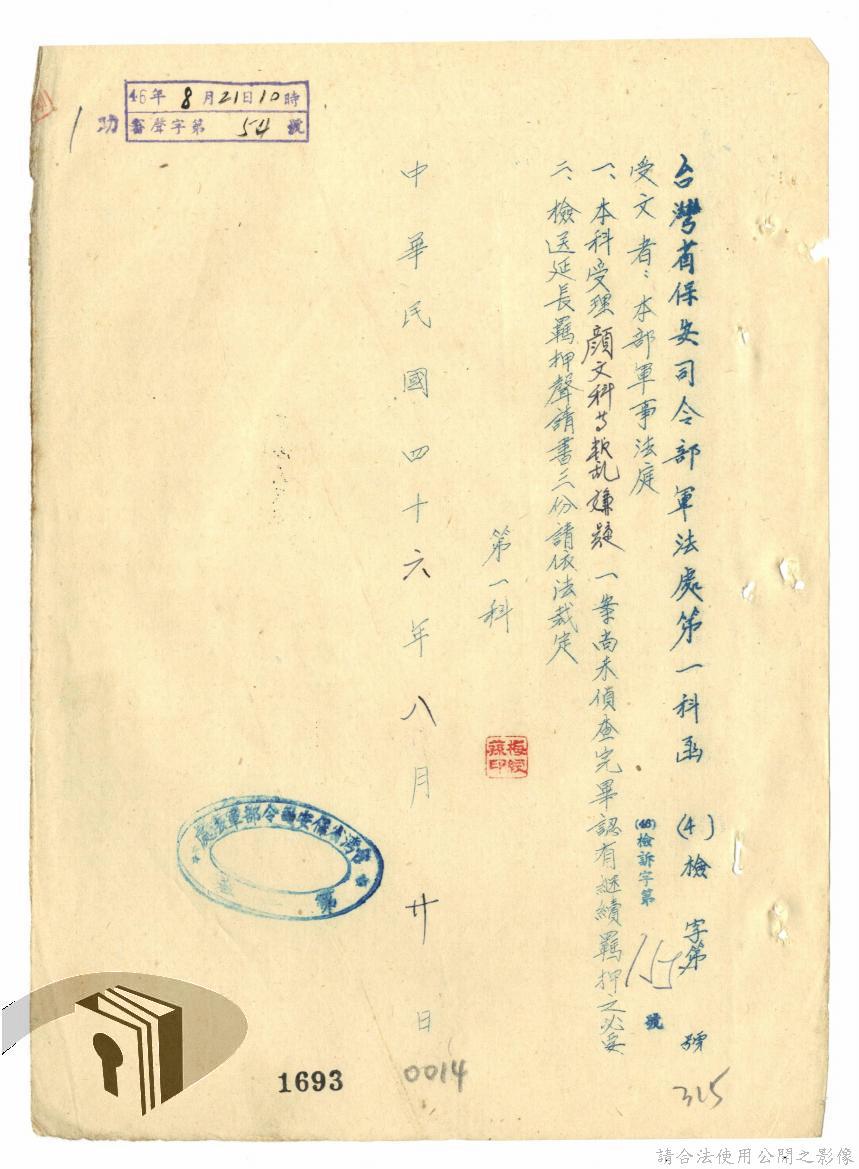 台灣省保安司令部軍法處第一科函 (4)檢 字第 號
(46)檢訴字第 號
受文者：本部軍事法庭
一、本科受理顏文科等叛乱嫌疑一案尚未偵查完畢認有継續羈押之必要
二、檢送延長羈押聲請書三份請依法裁定
第一科
中華民國四十六年八月廿日
46年8月21日10時
審聲字第54號
功
1693
0014
315
請合法使用公開之影像